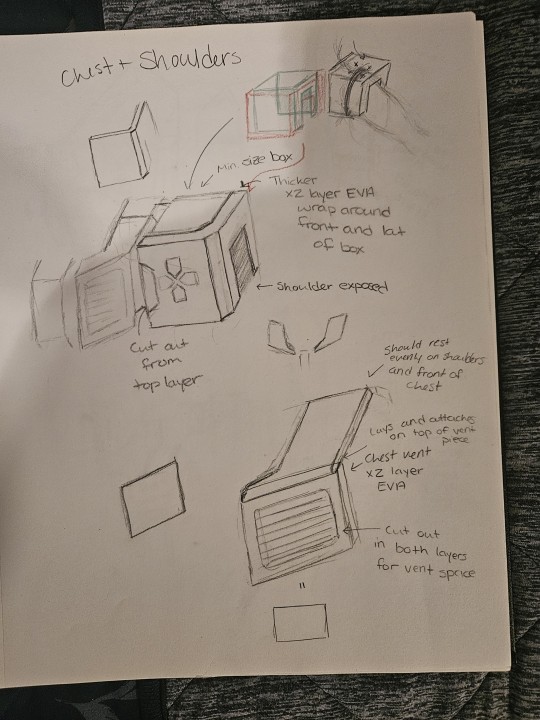 Chest + Shoulders
Min size box
Thicker
x2 layer EVA
wrap around
front and lat
of box
Shoulder exposed
Cut out
from
top layer
Should rest
evenly on shoulders
and front of
chest
Lays and attaches
on top of vent
piece
Chest vent
x2 layer
EVA
Cut out
in both layers
for vent